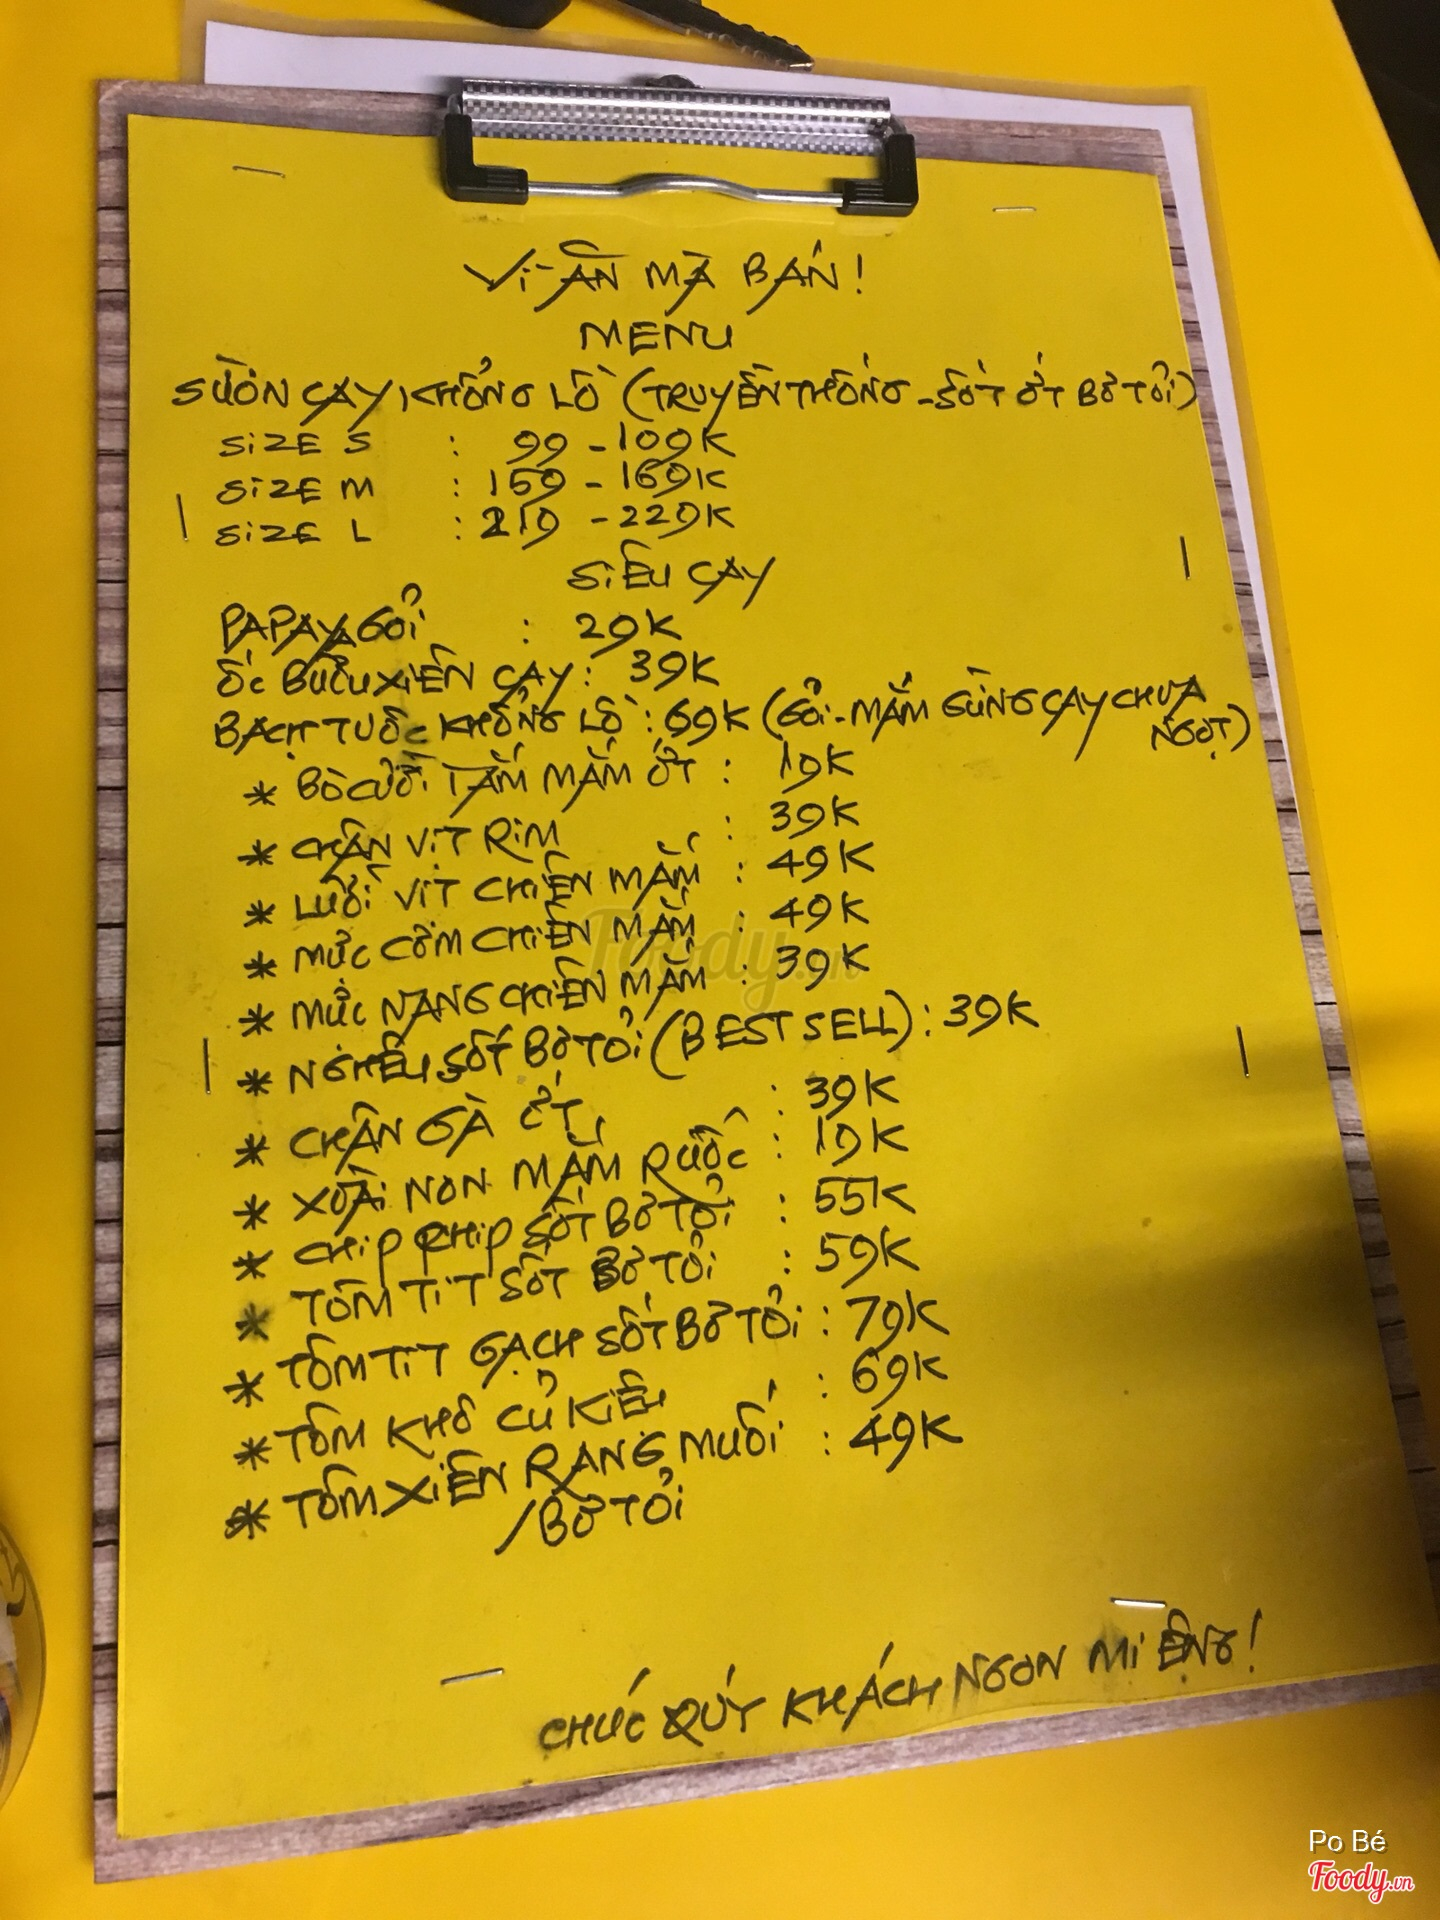 Vì ĂN MÀ BÁN!
MENU
SƯỜN CAY KHỔNG LỒ (TRUYỀN THỐNG - SỐT ỚT BƠ TỎI)
SIZE S : 99 - 109K
SIZE M : 159 - 169K
SIZE L : 219 - 229K
SIÊU CAY
PAPAYA GỎI : 29K
ỐC BƯƠU XIÊN CAY : 39K
BẠCH TUỘC KHỔNG LỒ : 69K (GỎI - MẮM GỪNG CAY CHUA
NGỌT)
* BÒ CƯỜI TẮM MẮM ỚT : 19K
* CHÂN VỊT RIM : 39K
* LƯỠI VỊT CHIÊN MẮM : 49K
* MỰC CƠM CHIÊN MẮM : 49K
* MỰC NANG CHIÊN MẮM : 39K
* NGHÊU SỐT BƠ TỎI (BEST SELL) : 39K
* CHÂN GÀ ỚT : 39K
* XOÀI NON MẮM RUỐC : 19K
* CHIP CHIP SỐT BƠ TỎI : 55K
* TÔM TÍT SỐT BƠ TỎI : 59K
* TÔM TÍT GẠCH SỐT BƠ TỎI : 79K
* TÔM KHÔ CỦ KIỆU : 69K
* TÔM XIÊN RANG MUỐI : 49K
/BƠ TỎI
CHÚC QUÝ KHÁCH NGON MIỆNG!
Foody.vn
Po Bé
Foody.vn